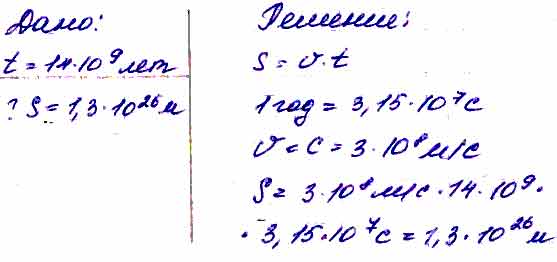 Дано:
t = 14·10⁹ лет
? S = 1,3·10²⁶ м
Решение:
S = υ·t
1 год = 3,15·10⁷ с
υ = c = 3·10⁸ м/с
S = 3·10⁸ м/с · 14·10⁹ ·
· 3,15·10⁷ с = 1,3·10²⁶ м